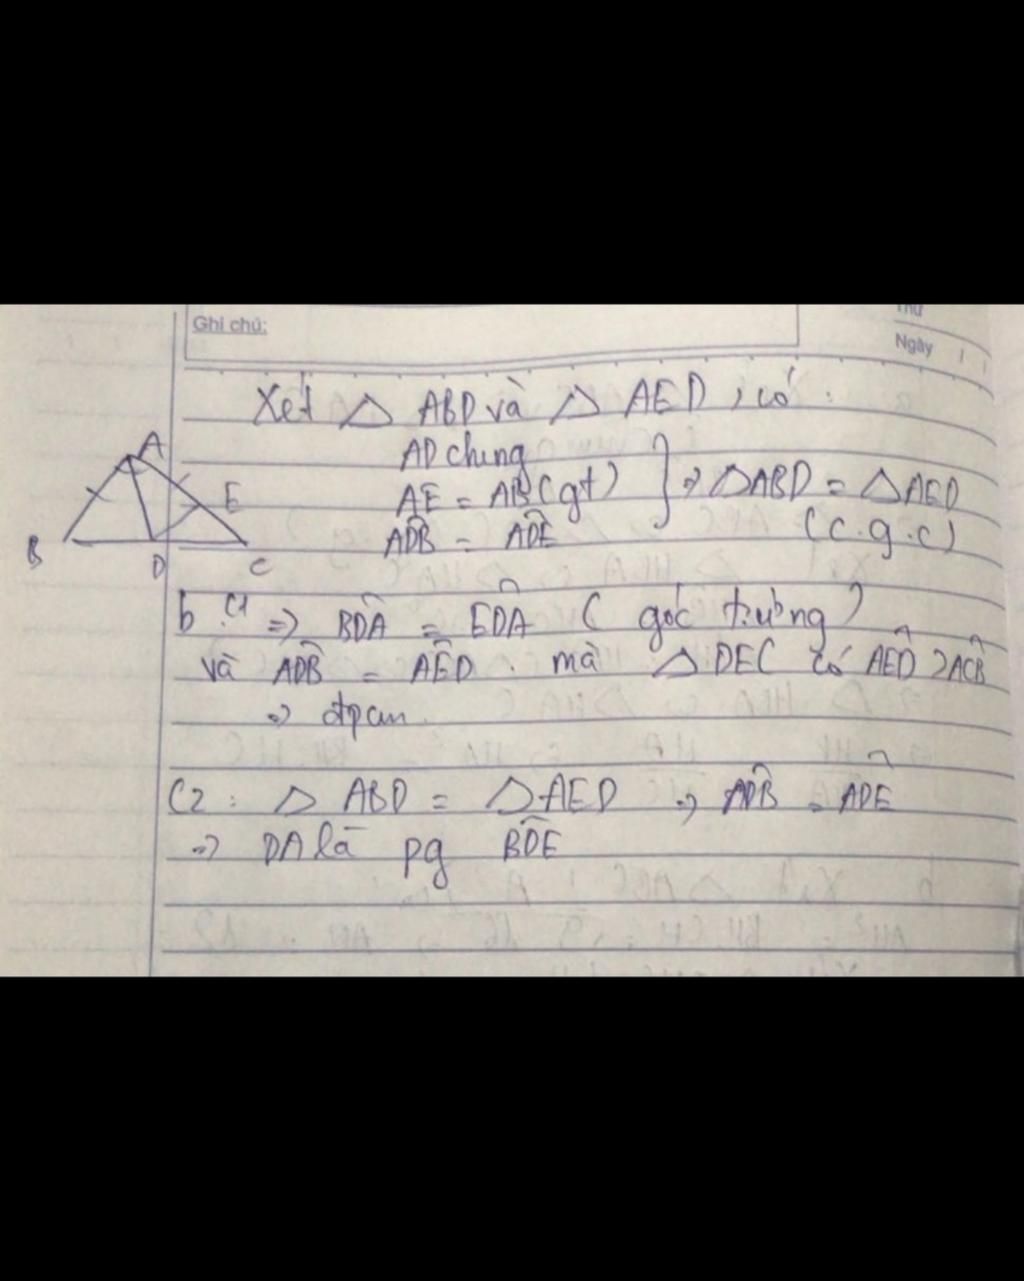 Ghi chú:
Thứ
Ngày
Xét △ ABD và △ AED, có:
AD chung
AE = AB (gt) } => △ABD = △AED
ADB̂ = ADÊ (c.g.c)
A
E
B
D
C
b. C1 => BD̂A = ED̂A (góc tường)
và AD̂B = AÊD. mà △ DEC có AÊD > AĈB
=> đpcm.
C2: △ ABD = △ AED => AD̂B = AD̂E
=> DA là pg BD̂E